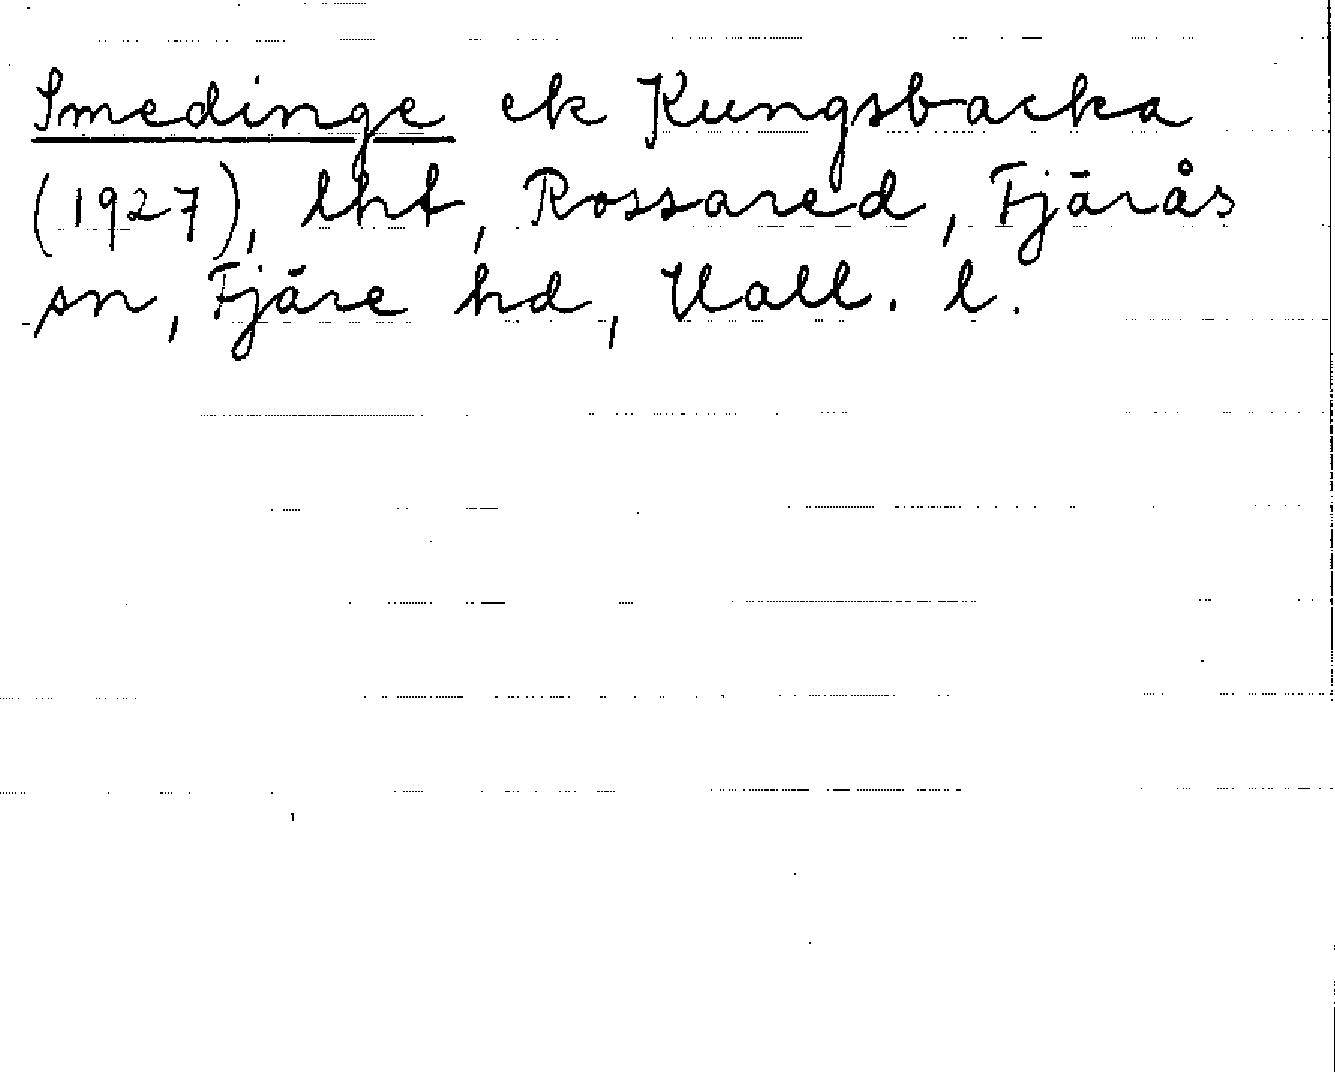 Smedinge ek Kungsbacka
(1927), lht, Rossared, Fjärås
sn, Fjäre hd, Hall. l.